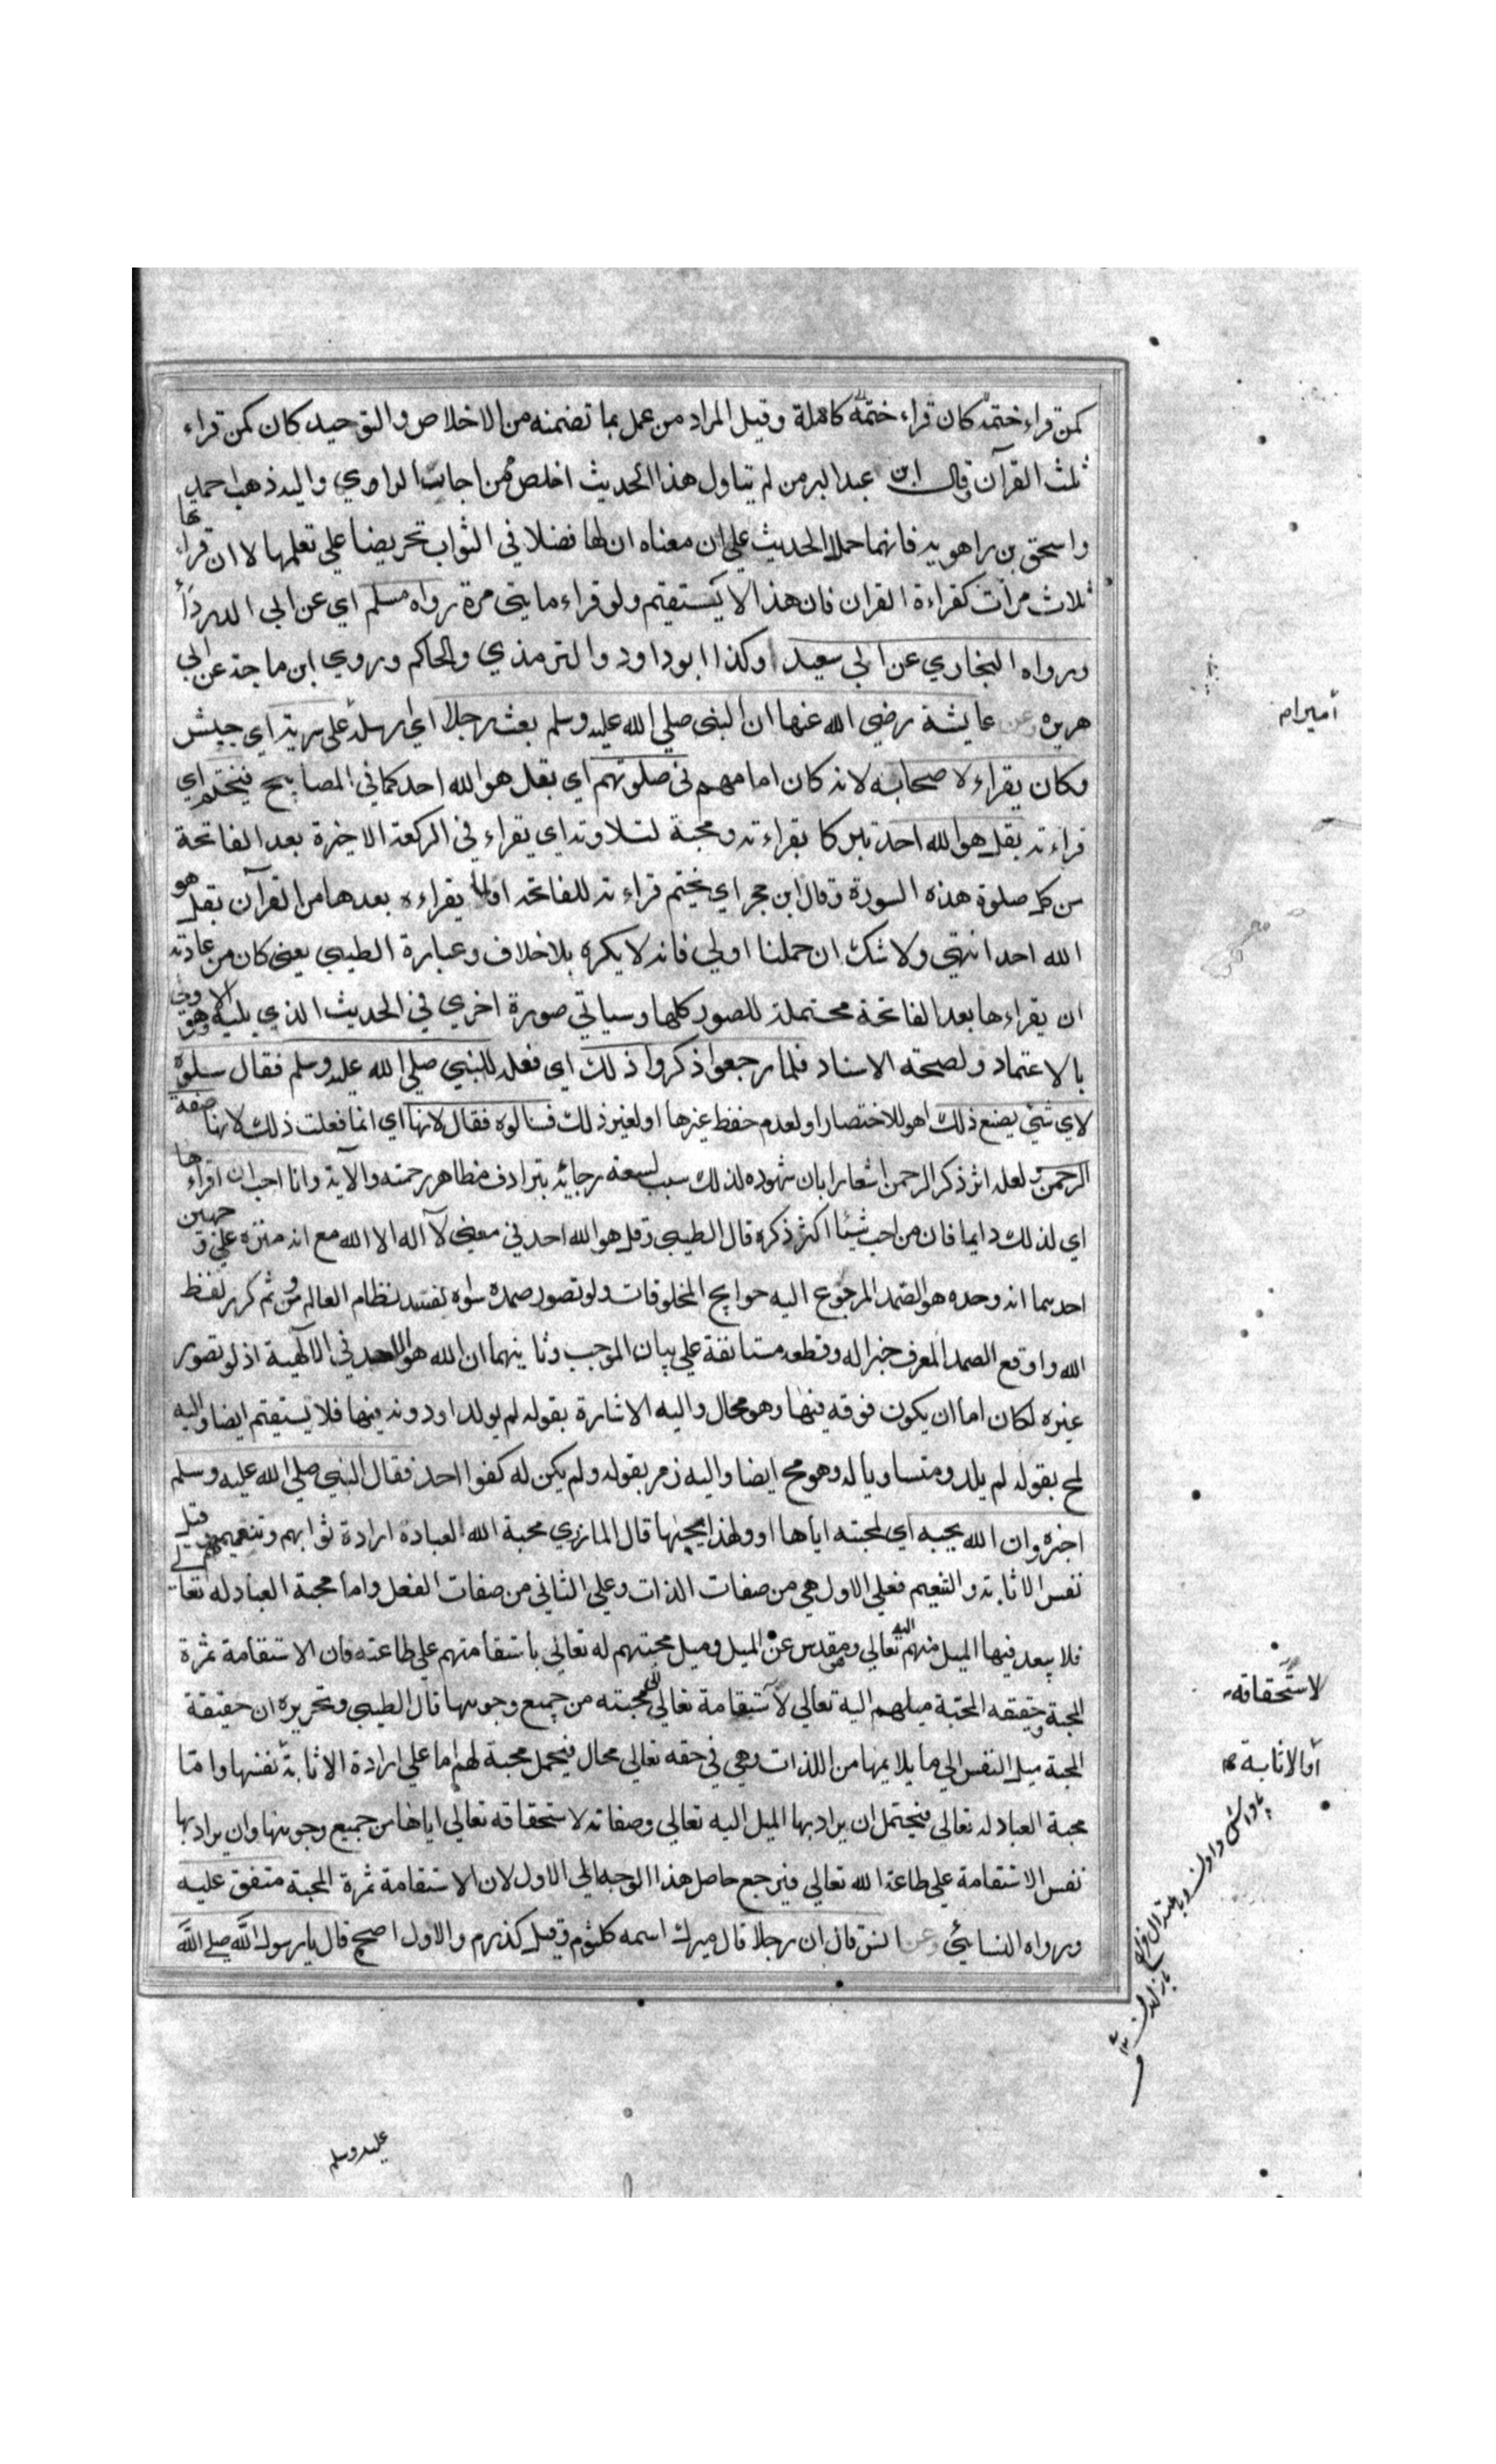 كمن قراء ختمة كان قراء ختمة كاملة وقيل المراد من عمل بما تضمنه من الاخلاص والتوحيد كان كمن قراء
ثلث القرآن وقال ابن عبد البر من لم يتاول هذا الحديث اخلص ممن اجاب الراوي واليه ذهب احمد
واسحق بن راهويه فانهما حملا الحديث علي ان معناه ان لها فضلا في الثواب تحريضا علي تعلمها لا ان قراءتها
ثلاث مرات كقراءة القران فان هذا لا يستقيم ولو قراء مايتي مرة رواه مسلم اي عن ابي الدرداء
ورواه البخاري عن ابي سعيد وكذا ابو داود والترمذي والحاكم وروي ابن ماجة عن ابي
هريره وعن عايشة رضي الله عنها ان النبي صلي الله عليه وسلم بعث رجلا اي ارسله علي سرية اي جيش
وكان يقراء لاصحابه لانه كان امامهم في صلوتهم اي بقل هو الله احد كما في المصابيح فيختم اي
قراءته بقل هو الله احد تبركا بقراءته ومحبة لتلاوته اي يقراء في الركعة الاخيرة بعد الفاتحة
من كل صلوة هذه السورة وقال ابن حجر اي يختم قراءته للفاتحة اولما يقراءه بعدها من القرآن بقل هو
الله احد انتهي ولا شك ان حملنا اولي فانه لا يكره بلا خلاف وعبارة الطيبي يعني كان من عادته
ان يقراءها بعد الفاتحة محتملة للصور كلها وسياتي صورة اخري في الحديث الذي يليه وهو الاولي
بالاعتماد ولصحته الاسناد فلما رجعوا ذكروا ذلك اي فعله للنبي صلي الله عليه وسلم فقال سلوه
لاي شئي يصنع ذلك اهو للاختصار او لعدم حفظ غيرها او لغير ذلك فسالوه فقال لانها اي انما فعلت ذلك لانها صفة
الرحمن ولعله اثر ذكر الرحمن اشعارا بان شهوده لذلك سبب لسعة رجائه بترادف مظاهر رحمته والآية وانا احب ان اقراءها
اي لذلك دايما فان من احب شيئا اكثر ذكره قال الطيبي وقل هو الله احد في معني لا آله الا الله مع انه منزه علي وجهين
احدهما انه وحده هو الصمد المرجوع اليه حوايج المخلوقات ولو تصور صمده سواه لفسد نظام العالم ومن ثم كرر لفظ
الله واوقع الصمد المعرف خبرا له وقطعه مستانفة علي بيان الموجب وثانيهما ان الله هو الاحد في الآلهية اذ لو تصور
غيره لكان اما ان يكون فوقه فيها وهو محال واليه الاشارة بقوله لم يولد او دونه فيها فلا يستقيم ايضا واليه
لمح بقوله لم يلد ومتساويا له وهو مح ايضا واليه زمر بقوله ولم يكن له كفوا احد فقال النبي صلي الله عليه وسلم
اخبروه ان الله يحبه اي لمحبته اياها او ولهذا يحبها قال المازري محبة الله العباده ارادة ثوابهم وتنعيمهم وقيل
نفس الاثابة والتنعيم فعلي الاول هي من صفات الذات وعلي الثاني من صفات الفعل واما محبة العباد له تعالي
فلا يبعد فيها الميل منهم اليه تعالي وهو مقدس عن الميل وميل محبتهم له تعالي باستقامتهم علي طاعته فان الاستقامة ثمرة
المحبة وحقيقه المحبة ميلهم الية تعالي لاستقامة تعالي المحبته من جميع وجوهها قال الطيبي وتحريره ان حقيقة
المحبة ميل النفس الي ما يلايمها من اللذات وهي في حقه تعالي محال فيحمل محبة لهم اما علي ارادة الاثابة نفسها واما
محبة العباد له تعالي فيحتمل ان يراد بها الميل اليه تعالي وصفاته لاستحقاقه تعالي اياها من جميع وجوهها وان يراد بها
نفس الاستقامة علي طاعة الله تعالي فيرجع حاصل هذا الوجه الي الاول لان الاستقامة ثمرة المحبة متفق عليه
ورواه النسائي وعن انس قال ان رجلا قال ميرك اسمه كلثوم وقيل كذرم والاول اصح قال يا رسول الله صلي الله
عليه وسلم
لاستحقاقه
أو الاثابة